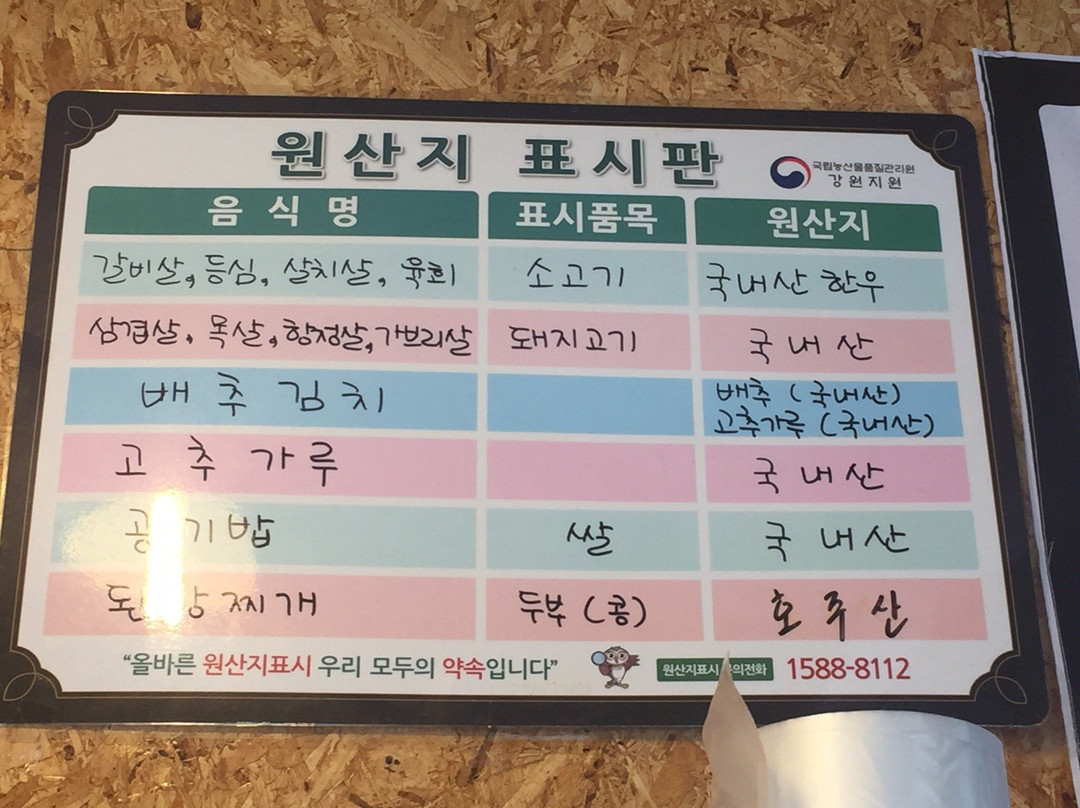 원산지 표시판
국립농산물품질관리원
강원지원
음식명 표시품목 원산지
갈비살, 등심, 살치살, 육회 소고기 국내산 한우
삼겹살, 목살, 항정살, 가브리살 돼지고기 국내산
배추김치 배추 (국내산)
고추가루 (국내산)
고추가루 국내산
공기밥 쌀 국내산
된장찌개 두부 (콩) 호주산
"올바른 원산지표시 우리 모두의 약속입니다" 원산지표시 문의전화 1588-8112